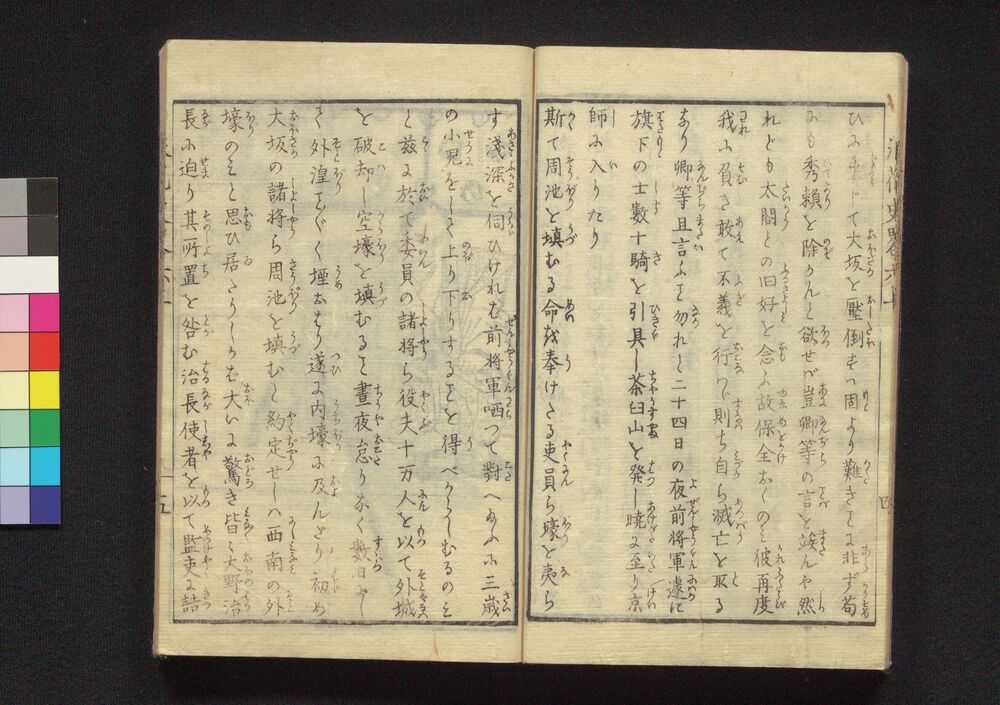 ひに乗じて大坂を壓倒すハ固より難きことに非ず苟
にも秀頼を除かんと欲せバ豈卿等の言を竢んや然
れども太閤との旧好を念ふ故保全なくのミ彼再度
我に負き敢て不義を行ハゞ則ち自ら滅亡を取る
あり卿等且言ふこと勿れと二十四日の夜前将軍遂に
旗下の士數十騎を引具し茶臼山を発し暁に至り京
師に入りたり
斯て周池を填むる命を奉けたる吏員ら壕を夷ら
す淺深を伺ひけれむ前将軍哂つて對へ給ふに三歳
の小児をして上り下りすることを得べからしむるのミ
と茲に於て委員の諸将ら役夫十万人を以て外城
を破却し空壕を填むること晝夜怠りなく數日にし
て外湟こと〴〵く堙をはり遂に内壕に及んとり初め
大坂の諸将ら周池を填むと約定せしハ西南の外
壕のミと思ひ居たりしかむ大いに驚き皆〻大野治
長に迫り其所置を咎む治長使者を以て監吏に詰